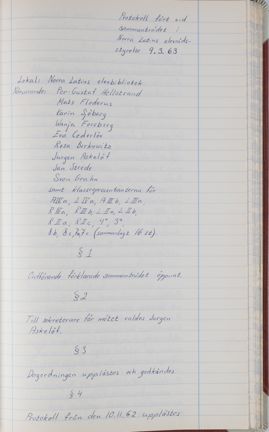 Protokoll fört vid
sammanträdet i
Norra Latins elevråds-
styrelse 9.3.63
Lokal: Norra Latins elevbibliotek
Närvarande: Per Gustaf Hellstrand
Mats Floderus
Karin Sjöberg
Wanja Forsberg
Eva Cederlöf
Rosa Berkowitz
Jurgen Askelöf
Jan Strede
Sven Grahn
samt klassrepresentanterna för
RIIIa, RIIIb, LIIa, LIIb,
RIIa, RIIc, 4ᵃ, 3ᵃ,
(sammanlagt 16 st).
§ 1
Ordförande förklarade sammanträdet öppnat.
§ 2
Till sekreterare för mötet valdes Jurgen
Askelöf.
§ 3
Dagordningen upplästes och godkändes
§ 4
Protokoll från den 10.11.62 upplästes